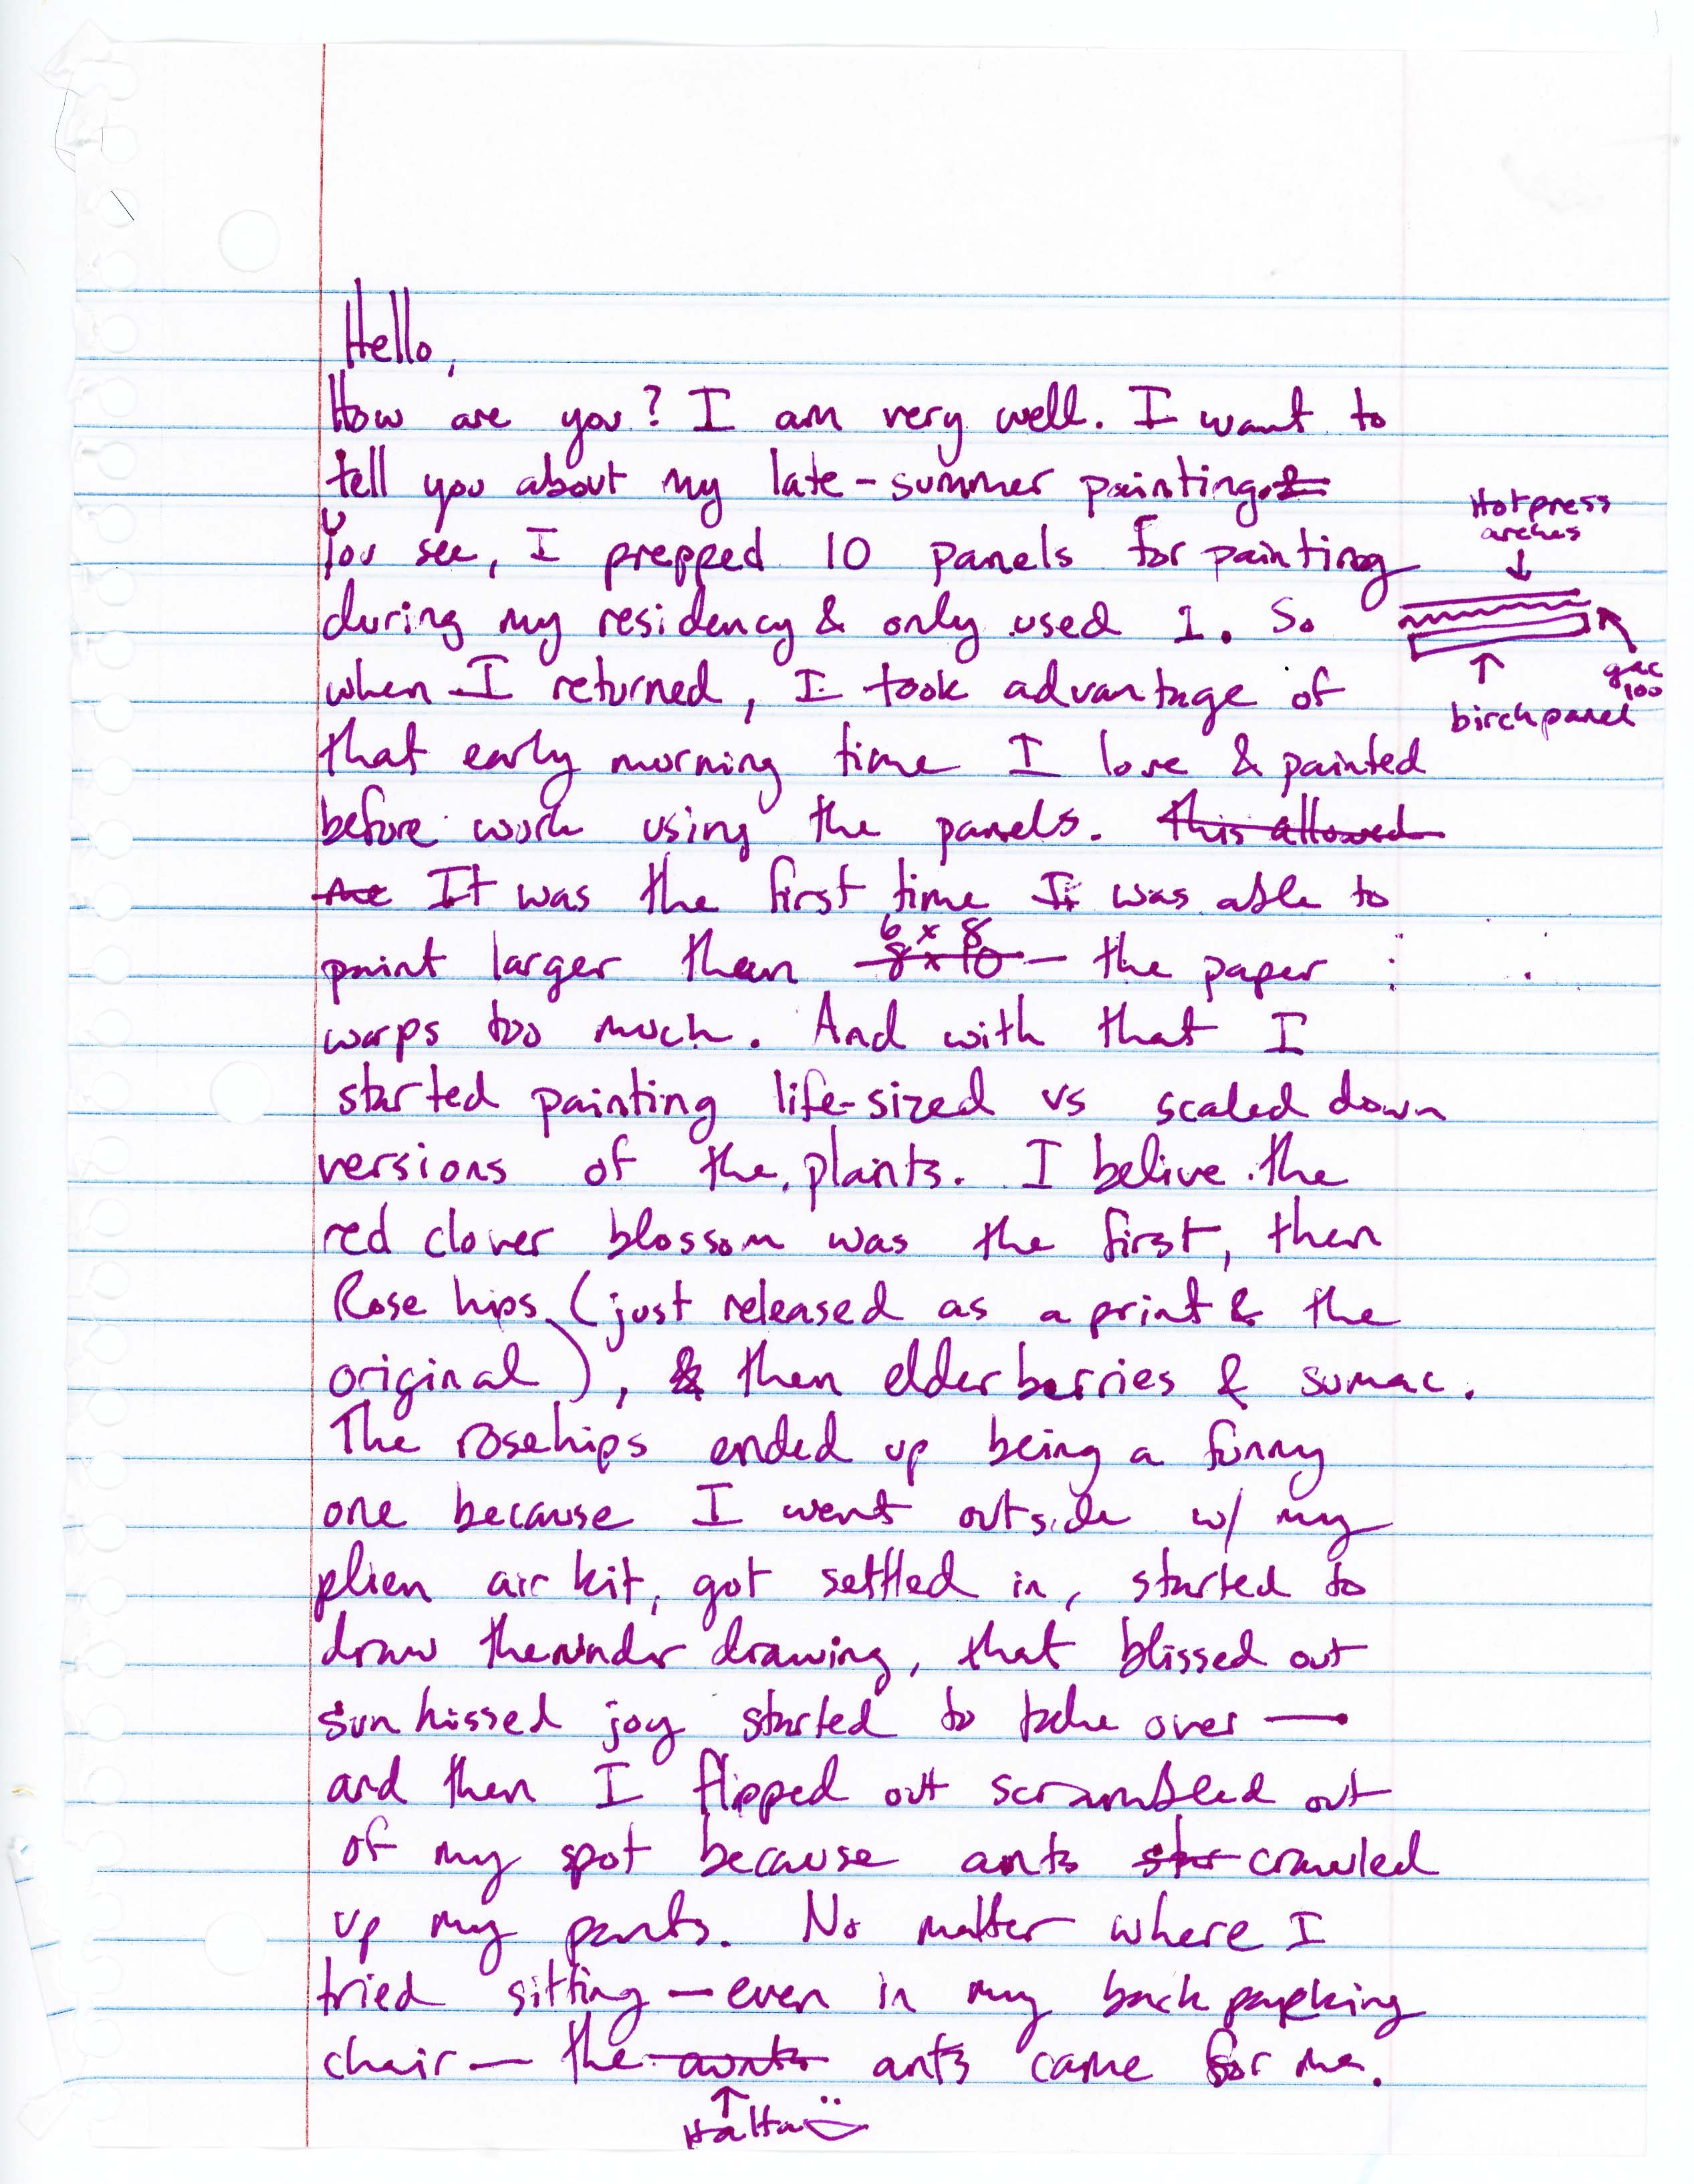 Hello,
How are you? I am very well. I want to
tell you about my late-summer painting.
You see, I prepped 10 panels for painting
Hotpress
arches
during my residency & only used 1. So
gac
100
birch panel
when I returned, I took advantage of
that early morning time I love & painted
before work using the panels. this allowed
me It was the first time I was able to
6 x 8
paint larger than 8 x 10 — the paper
warps too much. And with that I
started painting life-sized vs scaled down
versions of the plants. I belive the
red clover blossom was the first, then
Rose hips (just released as a print & the
original), & then elderberries & sumac.
The rosehips ended up being a funny
one because I went outside w/ my
plien air kit, got settled in, started to
draw the under drawing, that blissed out
sun kissed joy started to take over —
and then I flipped out scrambled out
of my spot because ants star crawled
up my pants. No matter where I
tried sitting — even in my back packing
chair — the aunts ants came for me.
Hahha